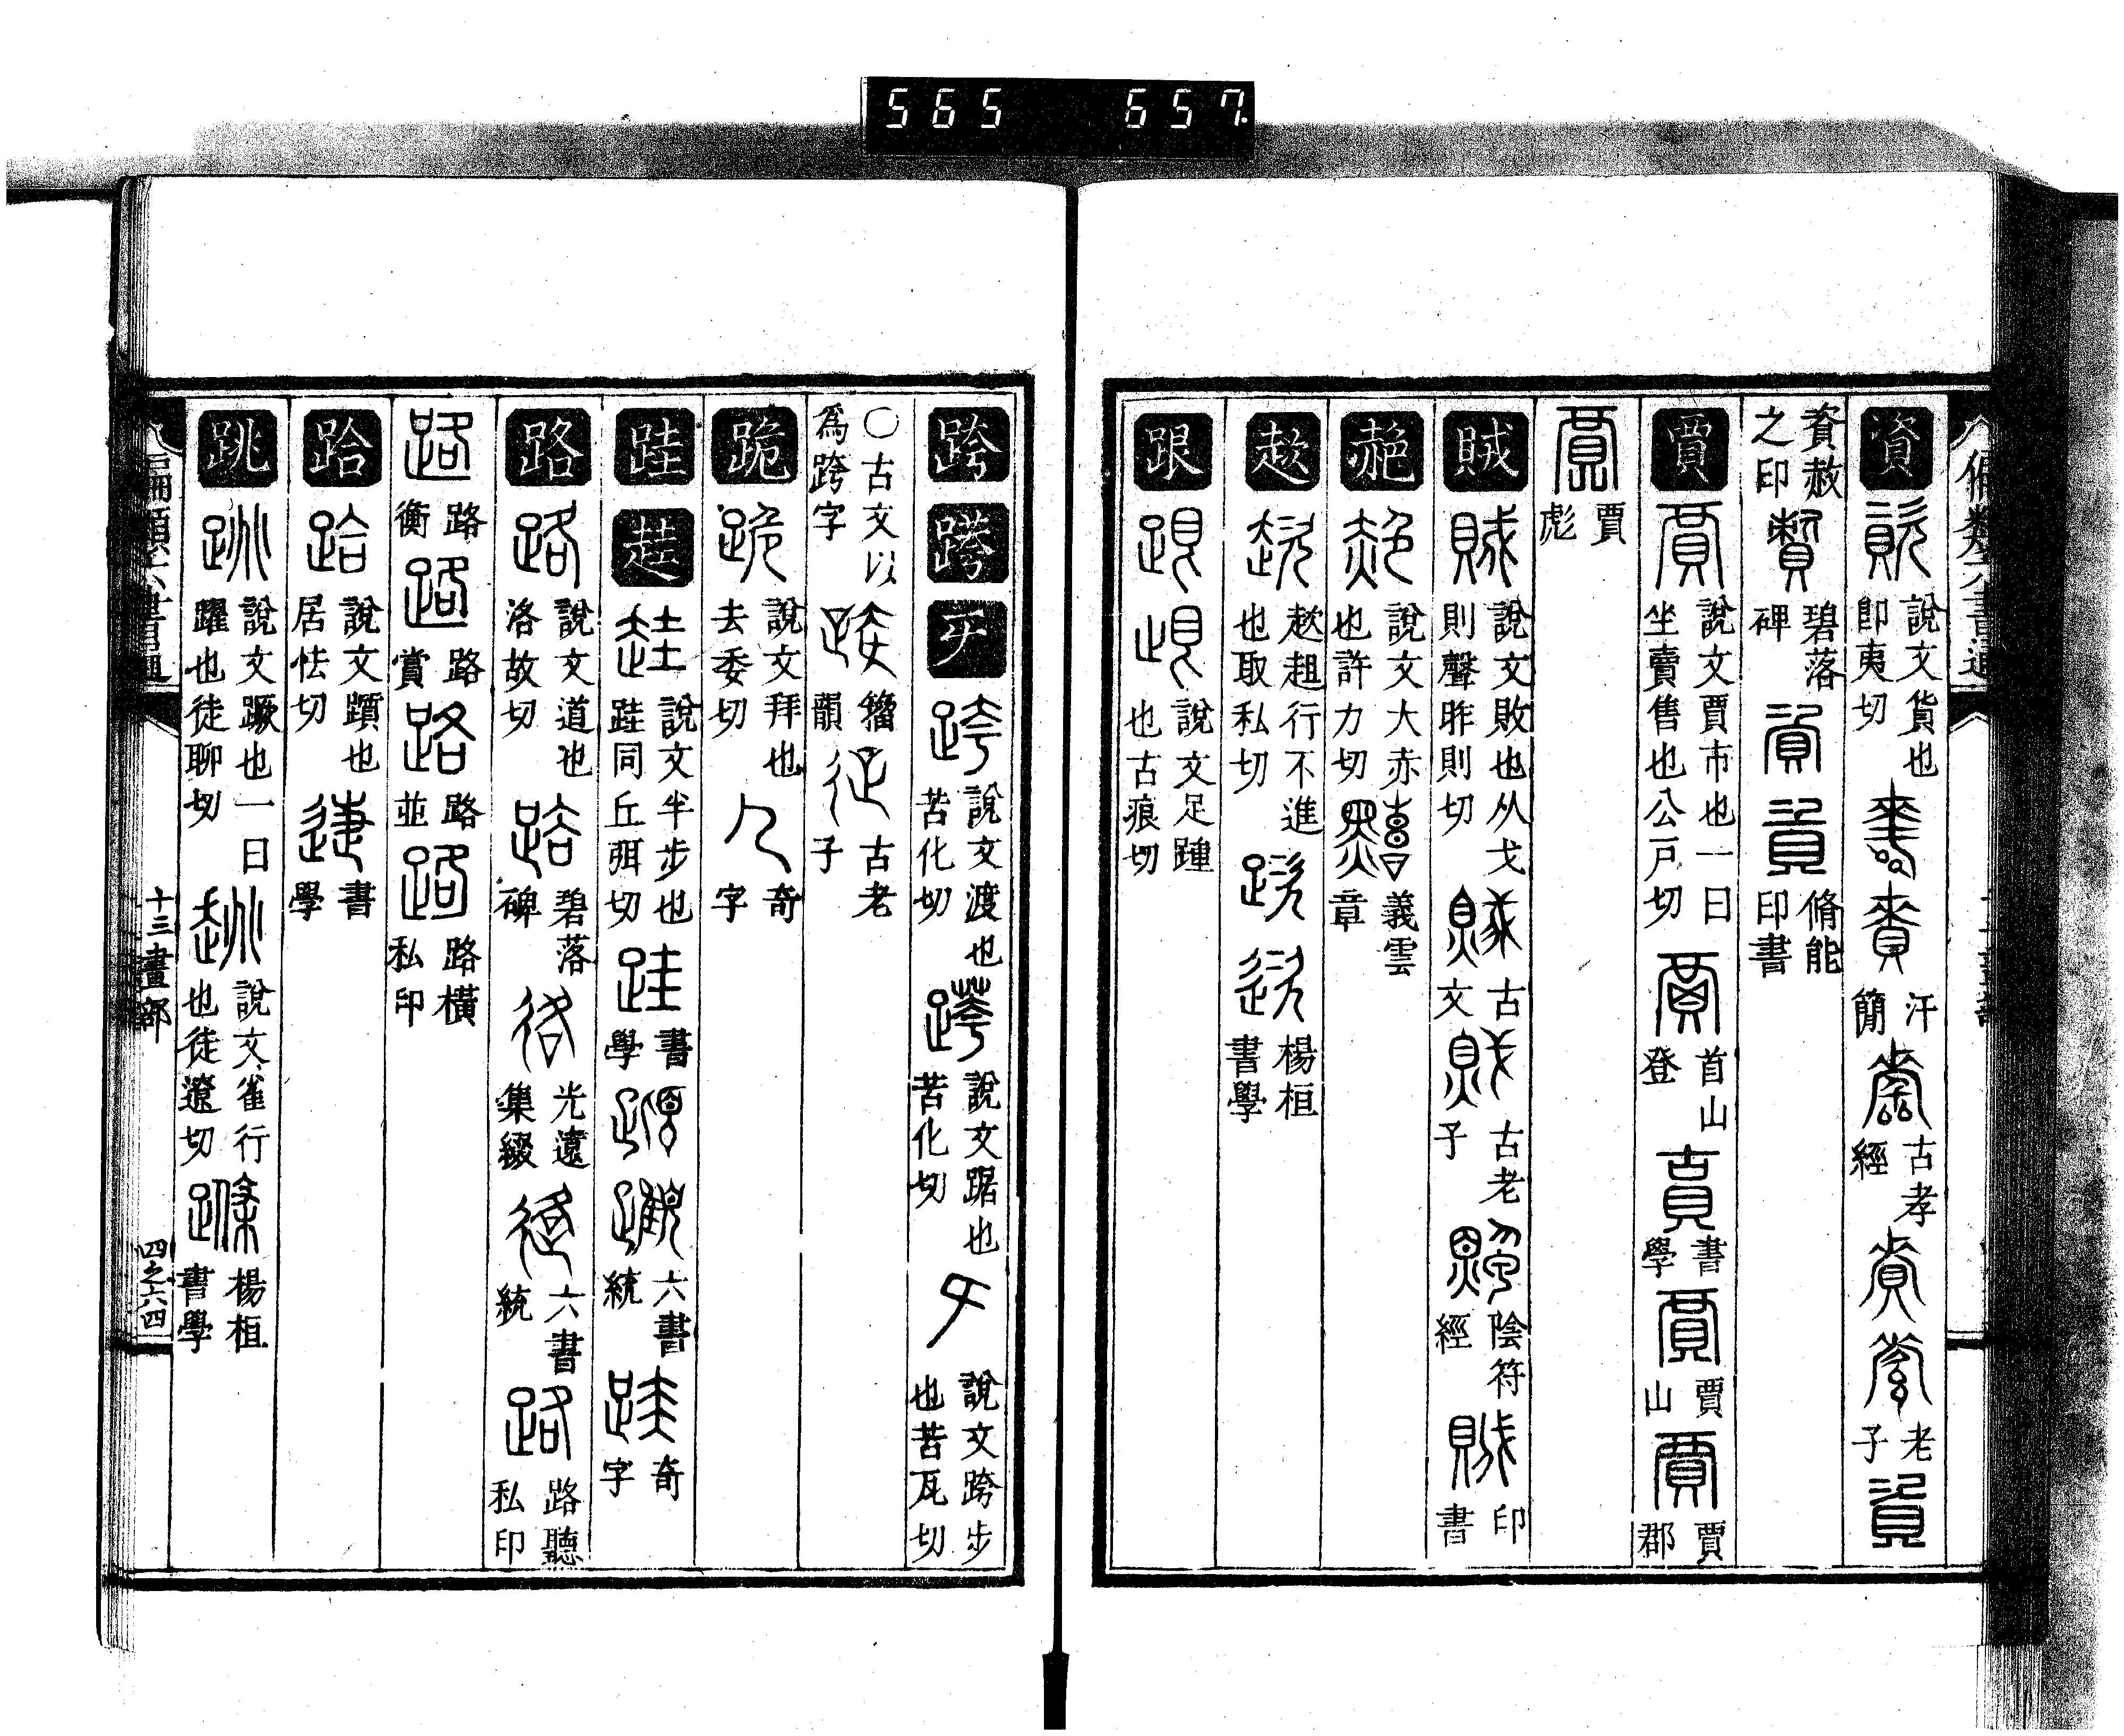 565 657
資 說文貨也即夷切 汗簡 古孝經 老子
資赦之印 碧落碑 脩能印書
賈 說文賈市也一曰坐賣售也公戸切 首山登 書學 賈山 賈郡
賈彪
賊 說文敗也从戈則聲昨則切 古文 古老子 陰符經 印書
赩 說文大赤也許力切 義雲章
趑 趑趄行不進也取私切 楊桓書學
跟 說文足踵也古痕切
跨 說文渡也苦化切 說文踞也苦化切 說文跨步也苦瓦切
○古文以為跨字 籀韻 古老子
跪 說文拜也去委切 奇字
跬 說文半步也跬同丘弭切 書學 六書統 奇字
路 說文道也洛故切 碧落碑 光遠集綴 六書統 路聽私印
路衡 路賞 路並 路橫私印
跲 說文躓也居怯切 書學
跳 說文蹶也一曰躍也徒聊切 說文雀行也徒遼切 楊桓書學
十三畫部 四之六四